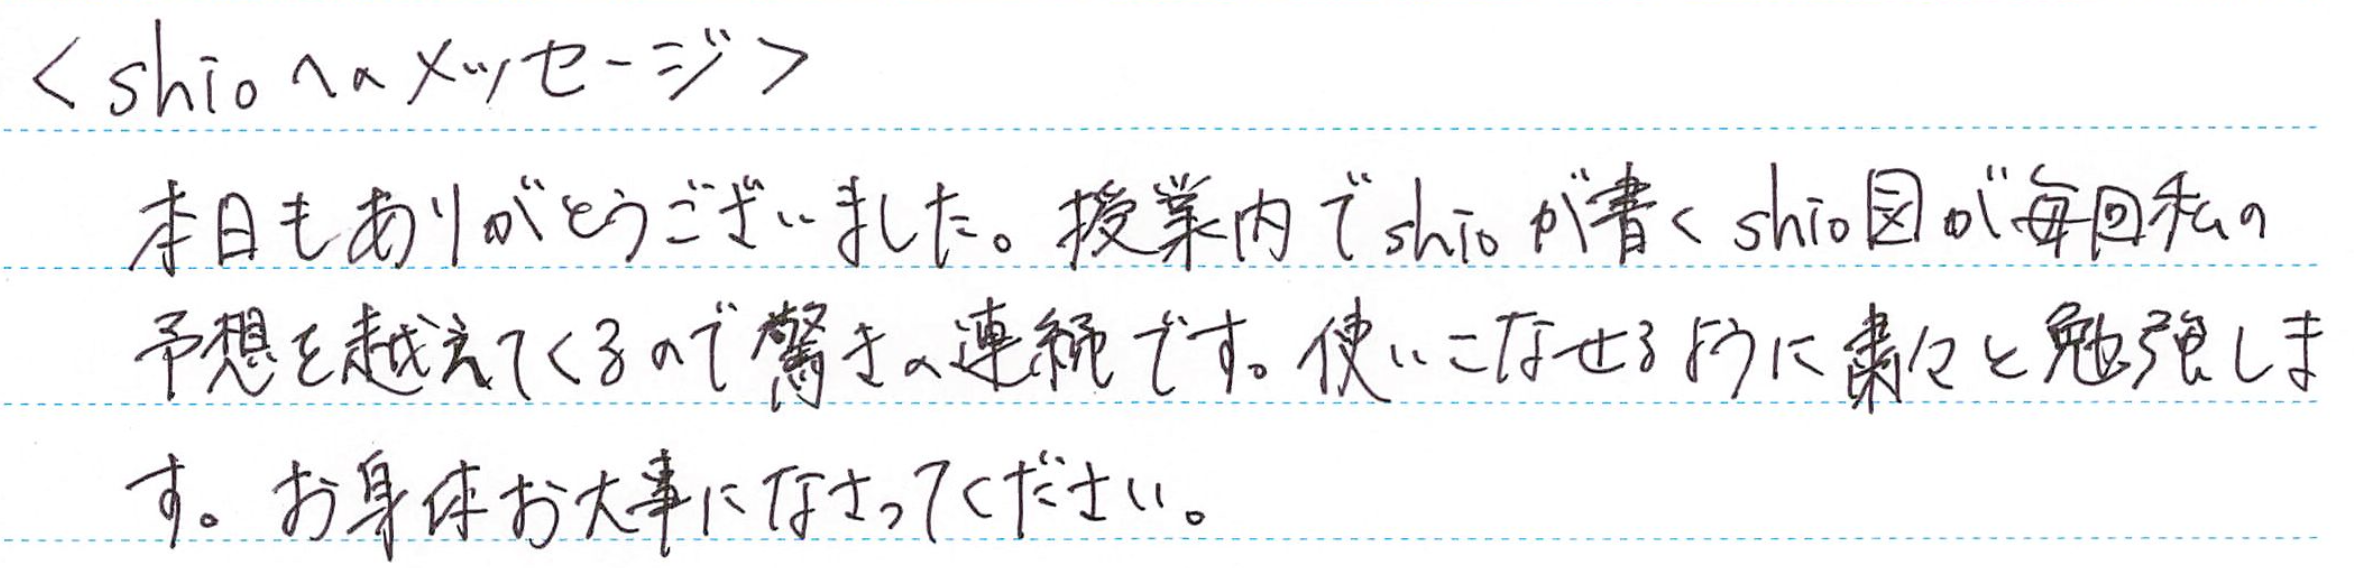 <shioへのメッセージ>
本日もありがとうございました。授業内でshioが書くshio図が毎回私の
予想を越えてくるので驚きの連続です。使いこなせるように粛々と勉強しま
す。お身体お大事になさってください。